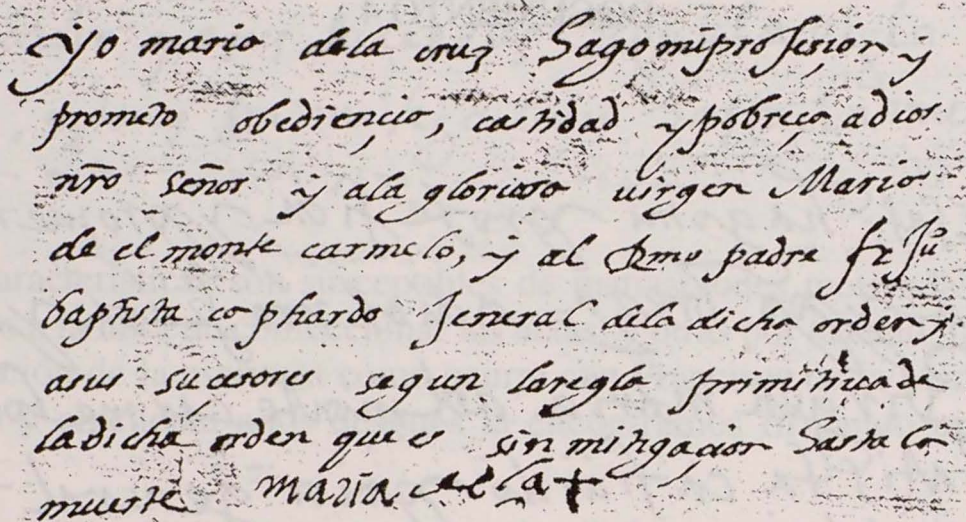 yo maria dela cruz hago mi profesion y
prometo obediençia, castidad y pobreça a dios
nr̃o señor y ala gloriosa uirgen Maria
de el monte carmelo, y al Rmo padre fr Ju°
baptista ca phardo Jeneral dela dicha orden y
asus suçesores segun laregla primitiua de
la dicha orden que es sin mitigaçion hasta la
muerte maria de la +